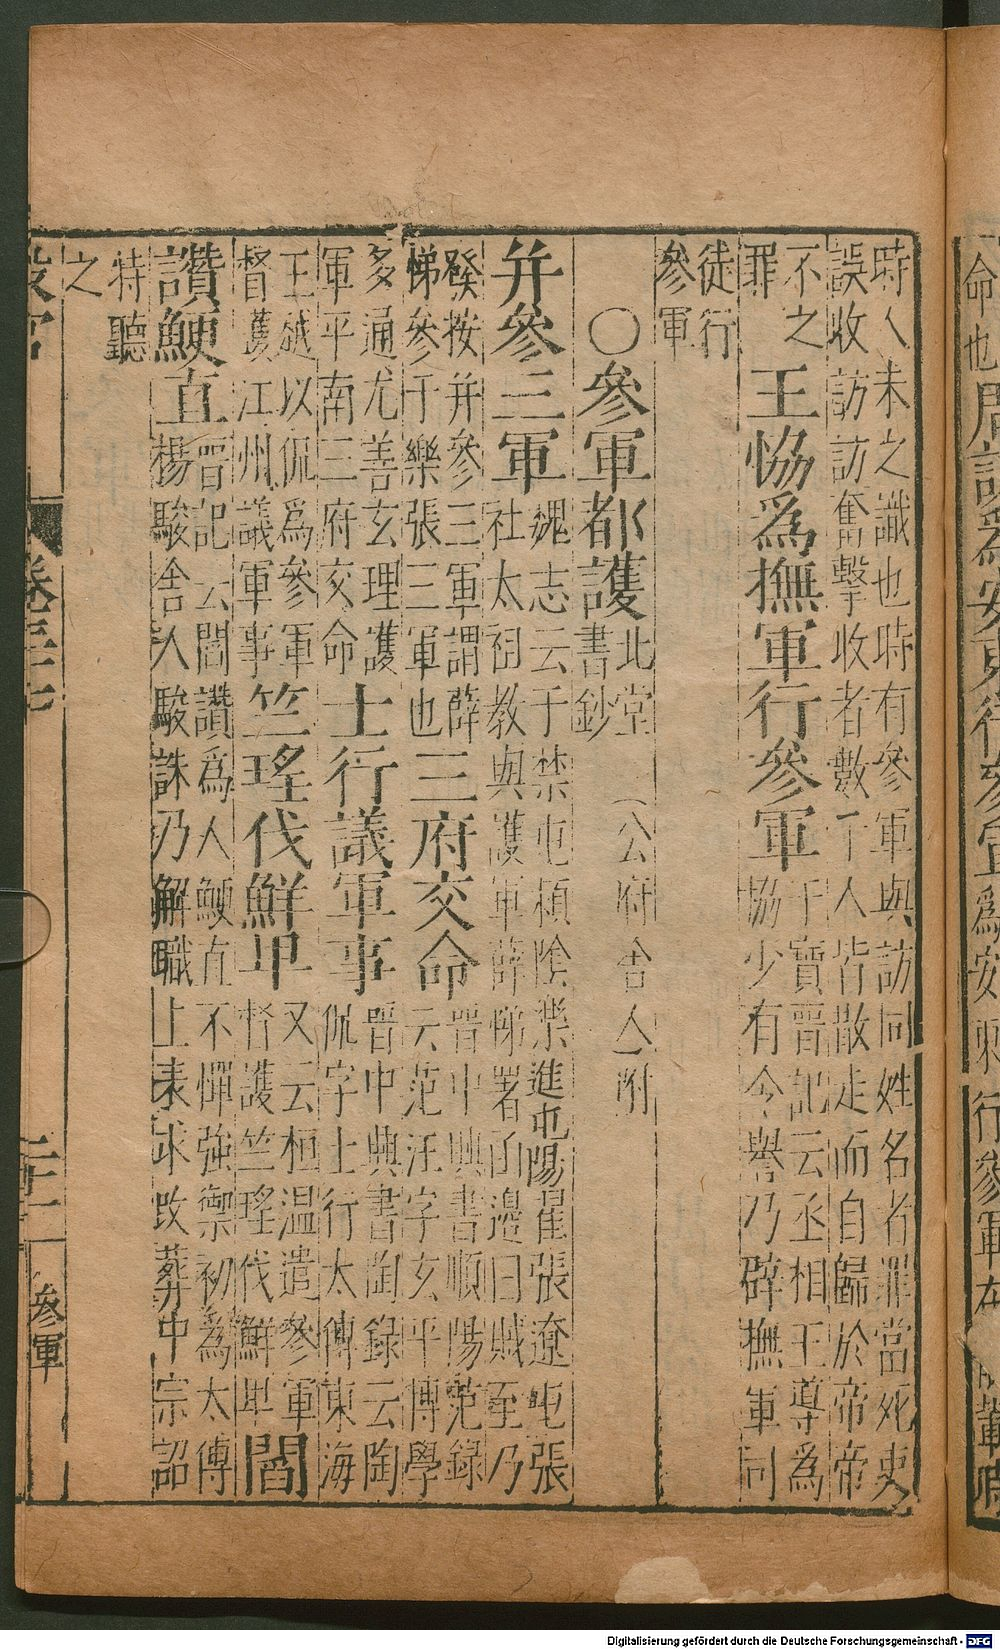 時人未之識也時有參軍與訪同姓名者罪當死吏
誤收訪訪奮擊收者數十人皆散走而自歸於帝帝
不之
罪
王恊為撫軍行參軍
干寶晋記云丞相王導為
恊少有令譽乃辟撫軍司
徒行
參軍
〇參軍都護
北堂
書鈔
(公府舍人)附
并參三軍
魏志云于禁屯頴陰樂進屯陽翟張遼屯長
社太祖教與護軍薛悌署函邊曰賊至乃
發按并參三軍謂薛
悌參于樂張三軍也
三府交命
晋中興書順陽范録
云范汪字玄平博學
多通尤善玄理護
軍平南三府交命
士行議軍事
晋中興書陶錄云陶
侃字士行太傅東海
王越以侃為參軍
督護江州議軍事
竺瑤伐鮮卑
又云桓溫遣參軍
督護竺瑤伐鮮卑
閻
讚鯁直
晋記云閻讚為人鯁直不憚強禦初為太傅
楊駿舍人駿誅乃解職上表求改葬中宗詔
特聽
之
設官
卷三十七
二十一
參軍
命也